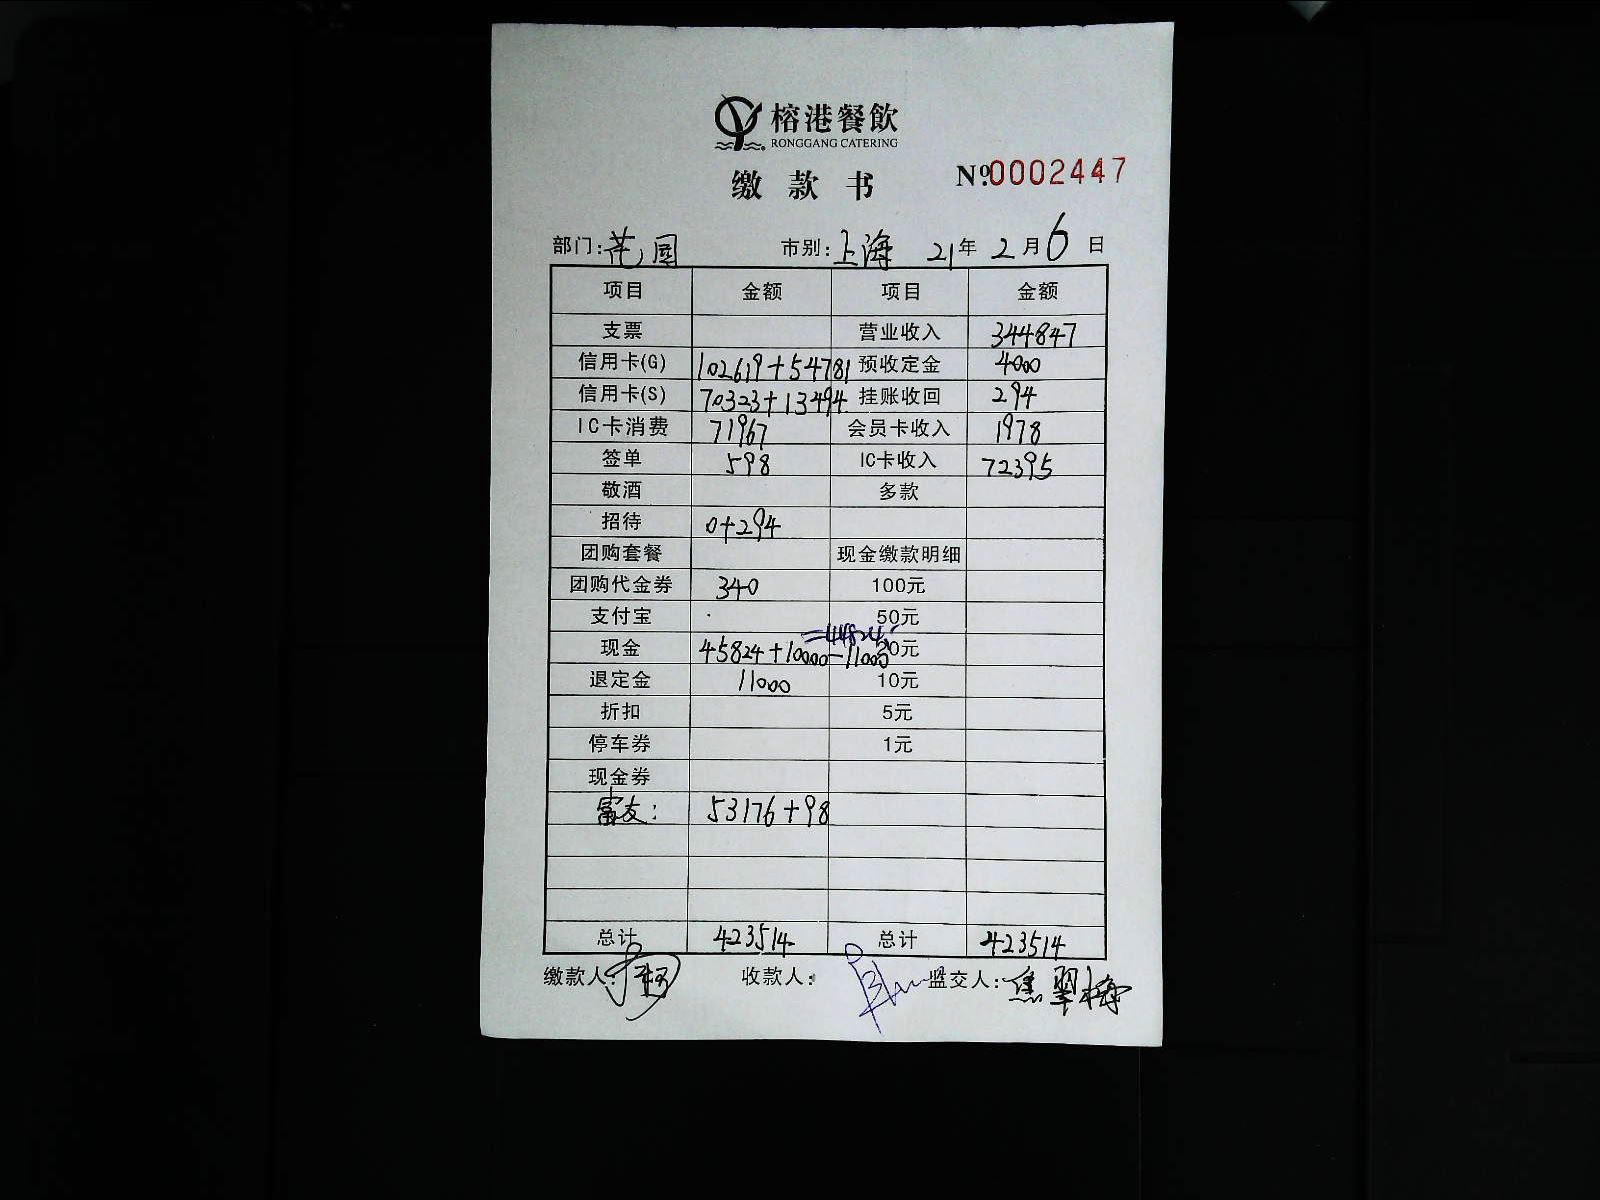 榕港餐飲
RONGGANG CATERING
缴款书 Nº.0002447
部门:花园 市别:上海 21年2月6日
项目 金额 项目 金额
支票 营业收入 344847
信用卡(G) 102619+54781 预收定金 4000
信用卡(S) 70323+13494 挂账收回 294
IC卡消费 71967 会员卡收入 1978
签单 598 IC卡收入 72395
敬酒 多款
招待 0+294
团购套餐 现金缴款明细
团购代金券 340 100元
支付宝 50元
=44824
现金 45824+10000-11000 20元
退定金 11000 10元
折扣 5元
停车券 1元
现金券
富友: 53176+98
总计 423514 总计 423514
缴款人: 收款人: 监交人:焦翠梅